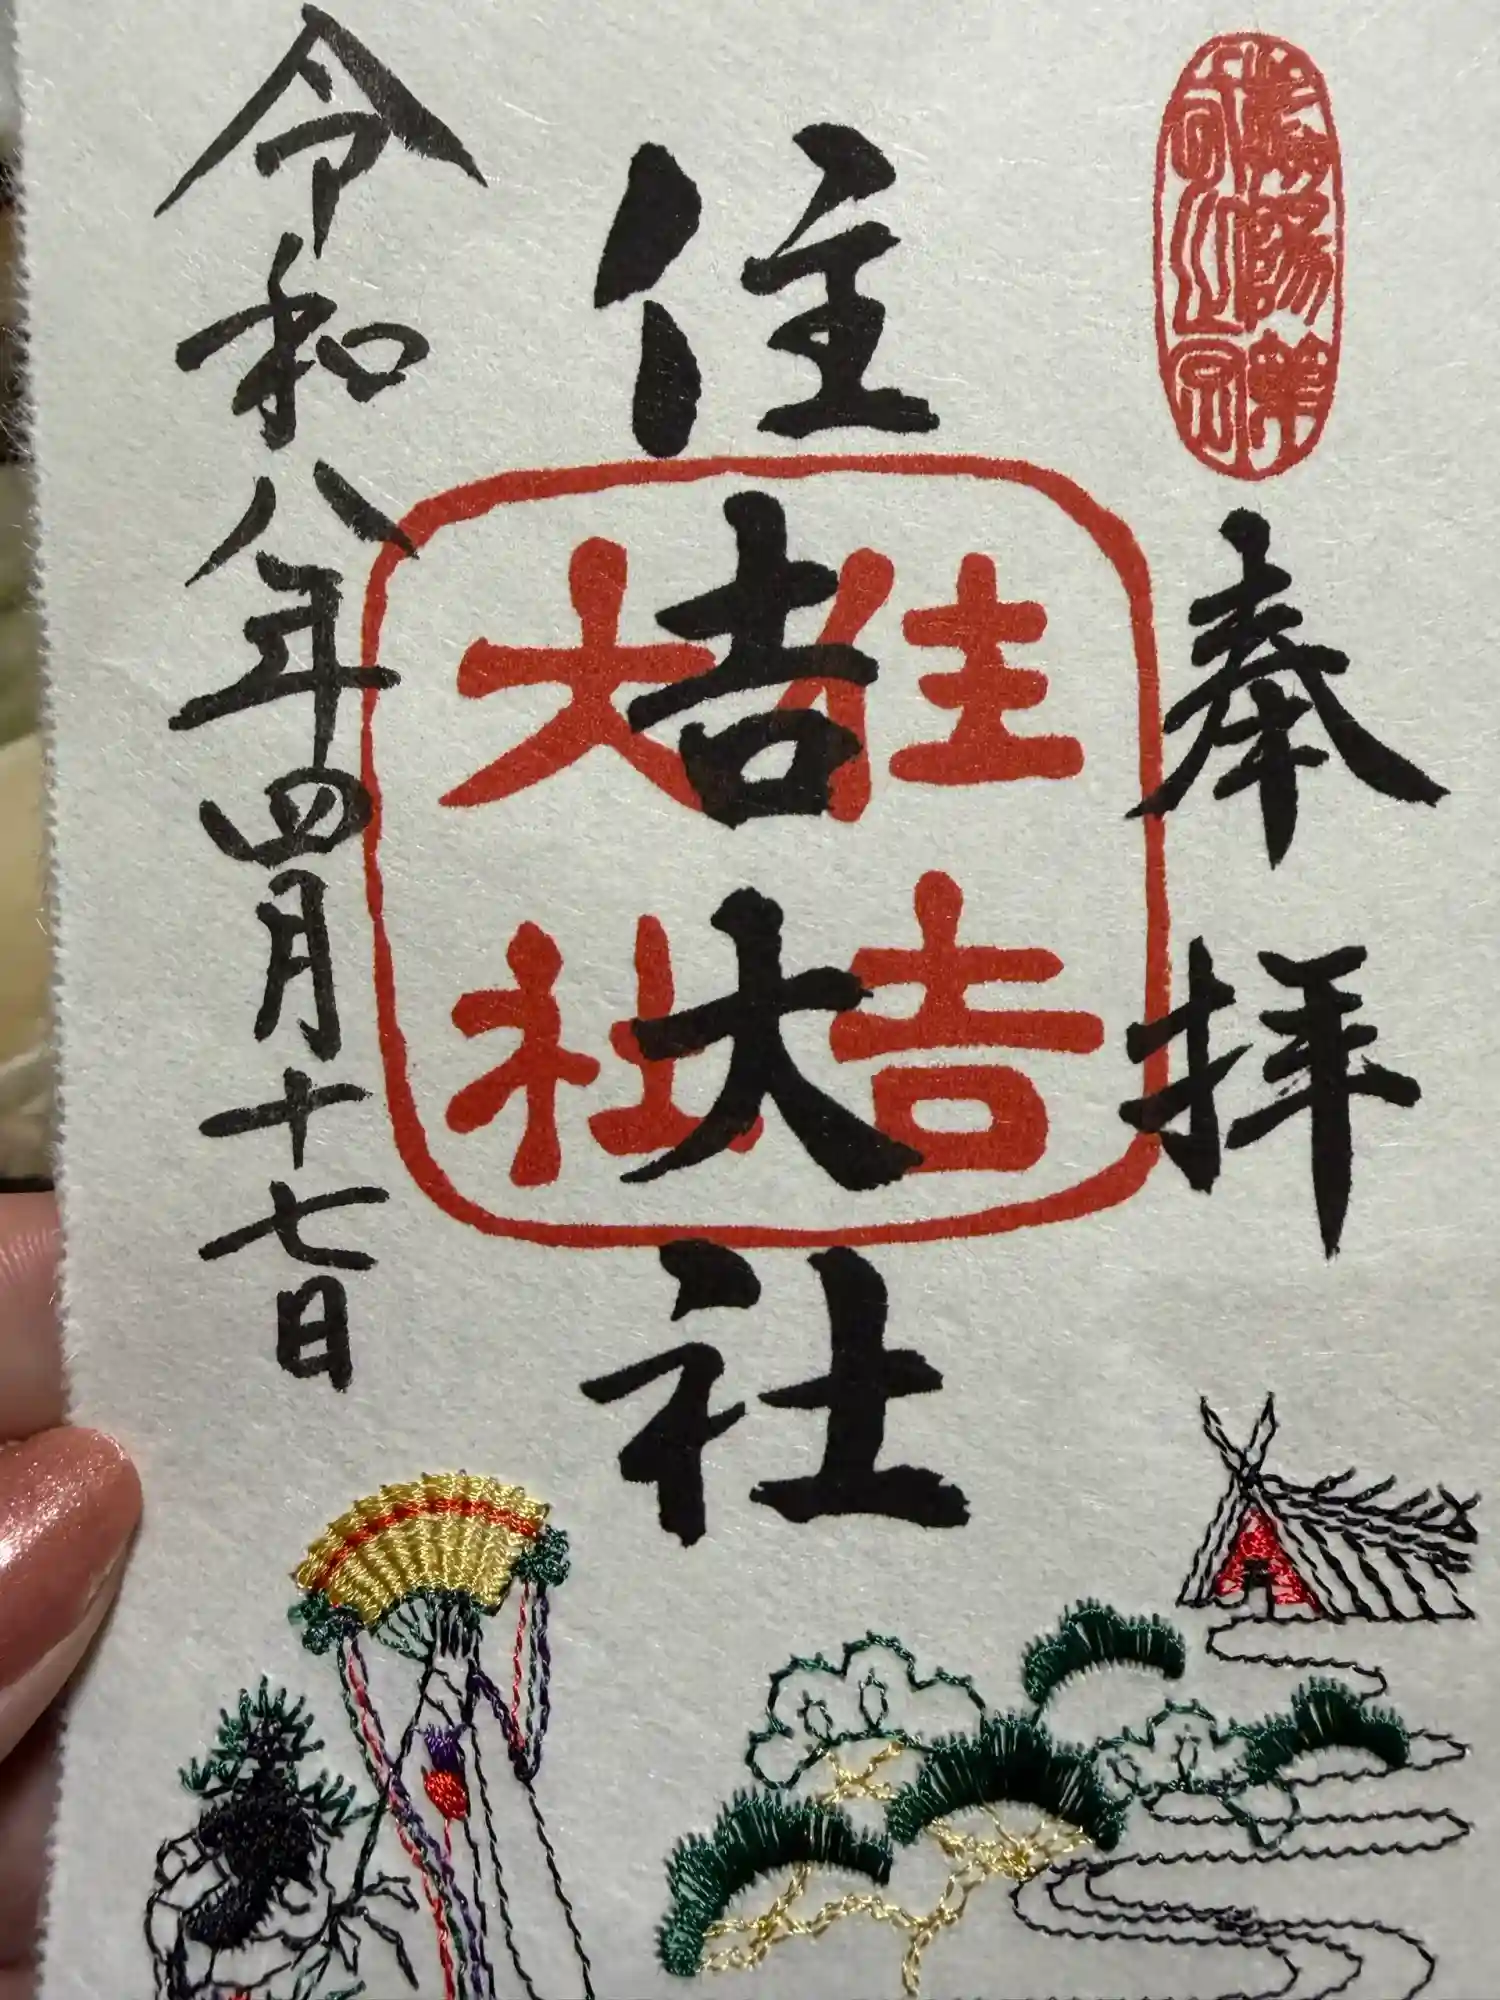 奉拝
住吉大社
住吉
大社
令和八年四月十七日